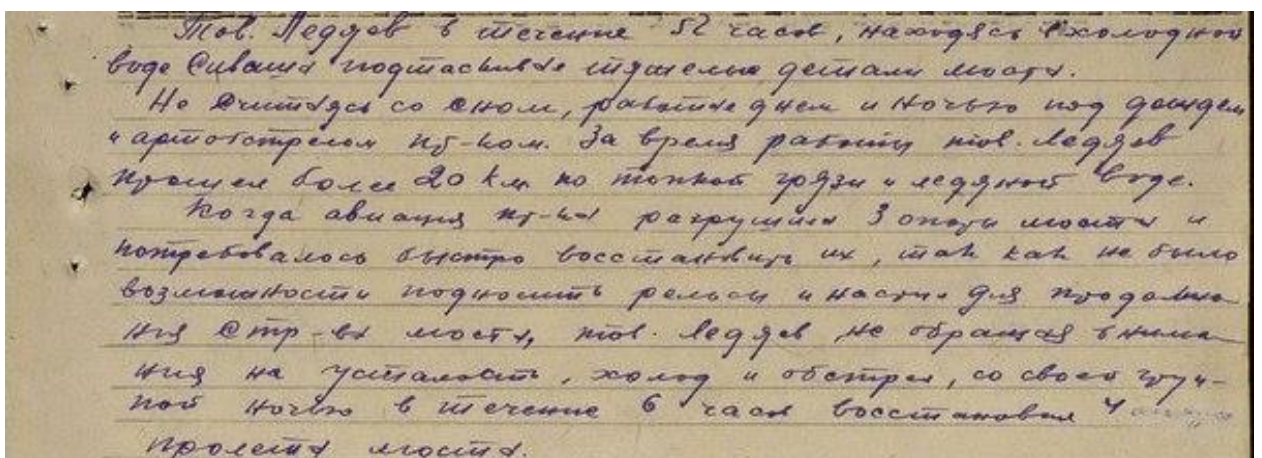 Тов. Ледяев в течение 52 часов, находясь в холодной
воде Сиваша подтаскивал тяжелые детали моста.
Не считаясь со сном, работал днем и ночью под дождем
и артобстрелом пр-ком. За время работы тов. Ледяев
прошел более 20 км по топкой грязи и ледяной воде.
Когда авиация пр-ка разрушила 3 опоры моста и
потребовалось быстро восстановить их, так как не было
возможности подносить рельсы и настил для продолже
ния стр-ва моста, тов. Ледяев не обращая внима
ния на усталость, холод и обстрел, со своей груп-
пой ночью в течение 6 часов восстановил 4
пролета моста.